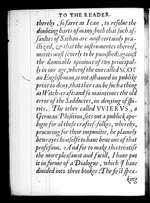 TO THE READER.
thereby, so farre as I can, to resolue the
doubting harts of many; both that such as-
saultes of Sathan are most certainly pra-
ctized, & that the instrumentes thereof,
merits most severly to be punished: against
the damnable opinions of two principally
in our age, wherof the one called SCOT
an Englishman, is not ashamed in publike
print to deny, that ther can be such a thing
as Witch-craft: and so mainteines the old
error of the Sadducees, in denying of spi-
rits. The other called VVIERVS, a
German Phisition, sets out a publick apo-
logie for al these craftes-folkes, whereby,
procuring for their impunitie, he plainely
bewrayes himselfe to haue bene one of that
profession. And for to make this treatise
the more pleasaunt and facill, I haue put
it in forme of a Dialogue, which I haue
diuided into three bookes: The first spea-
king